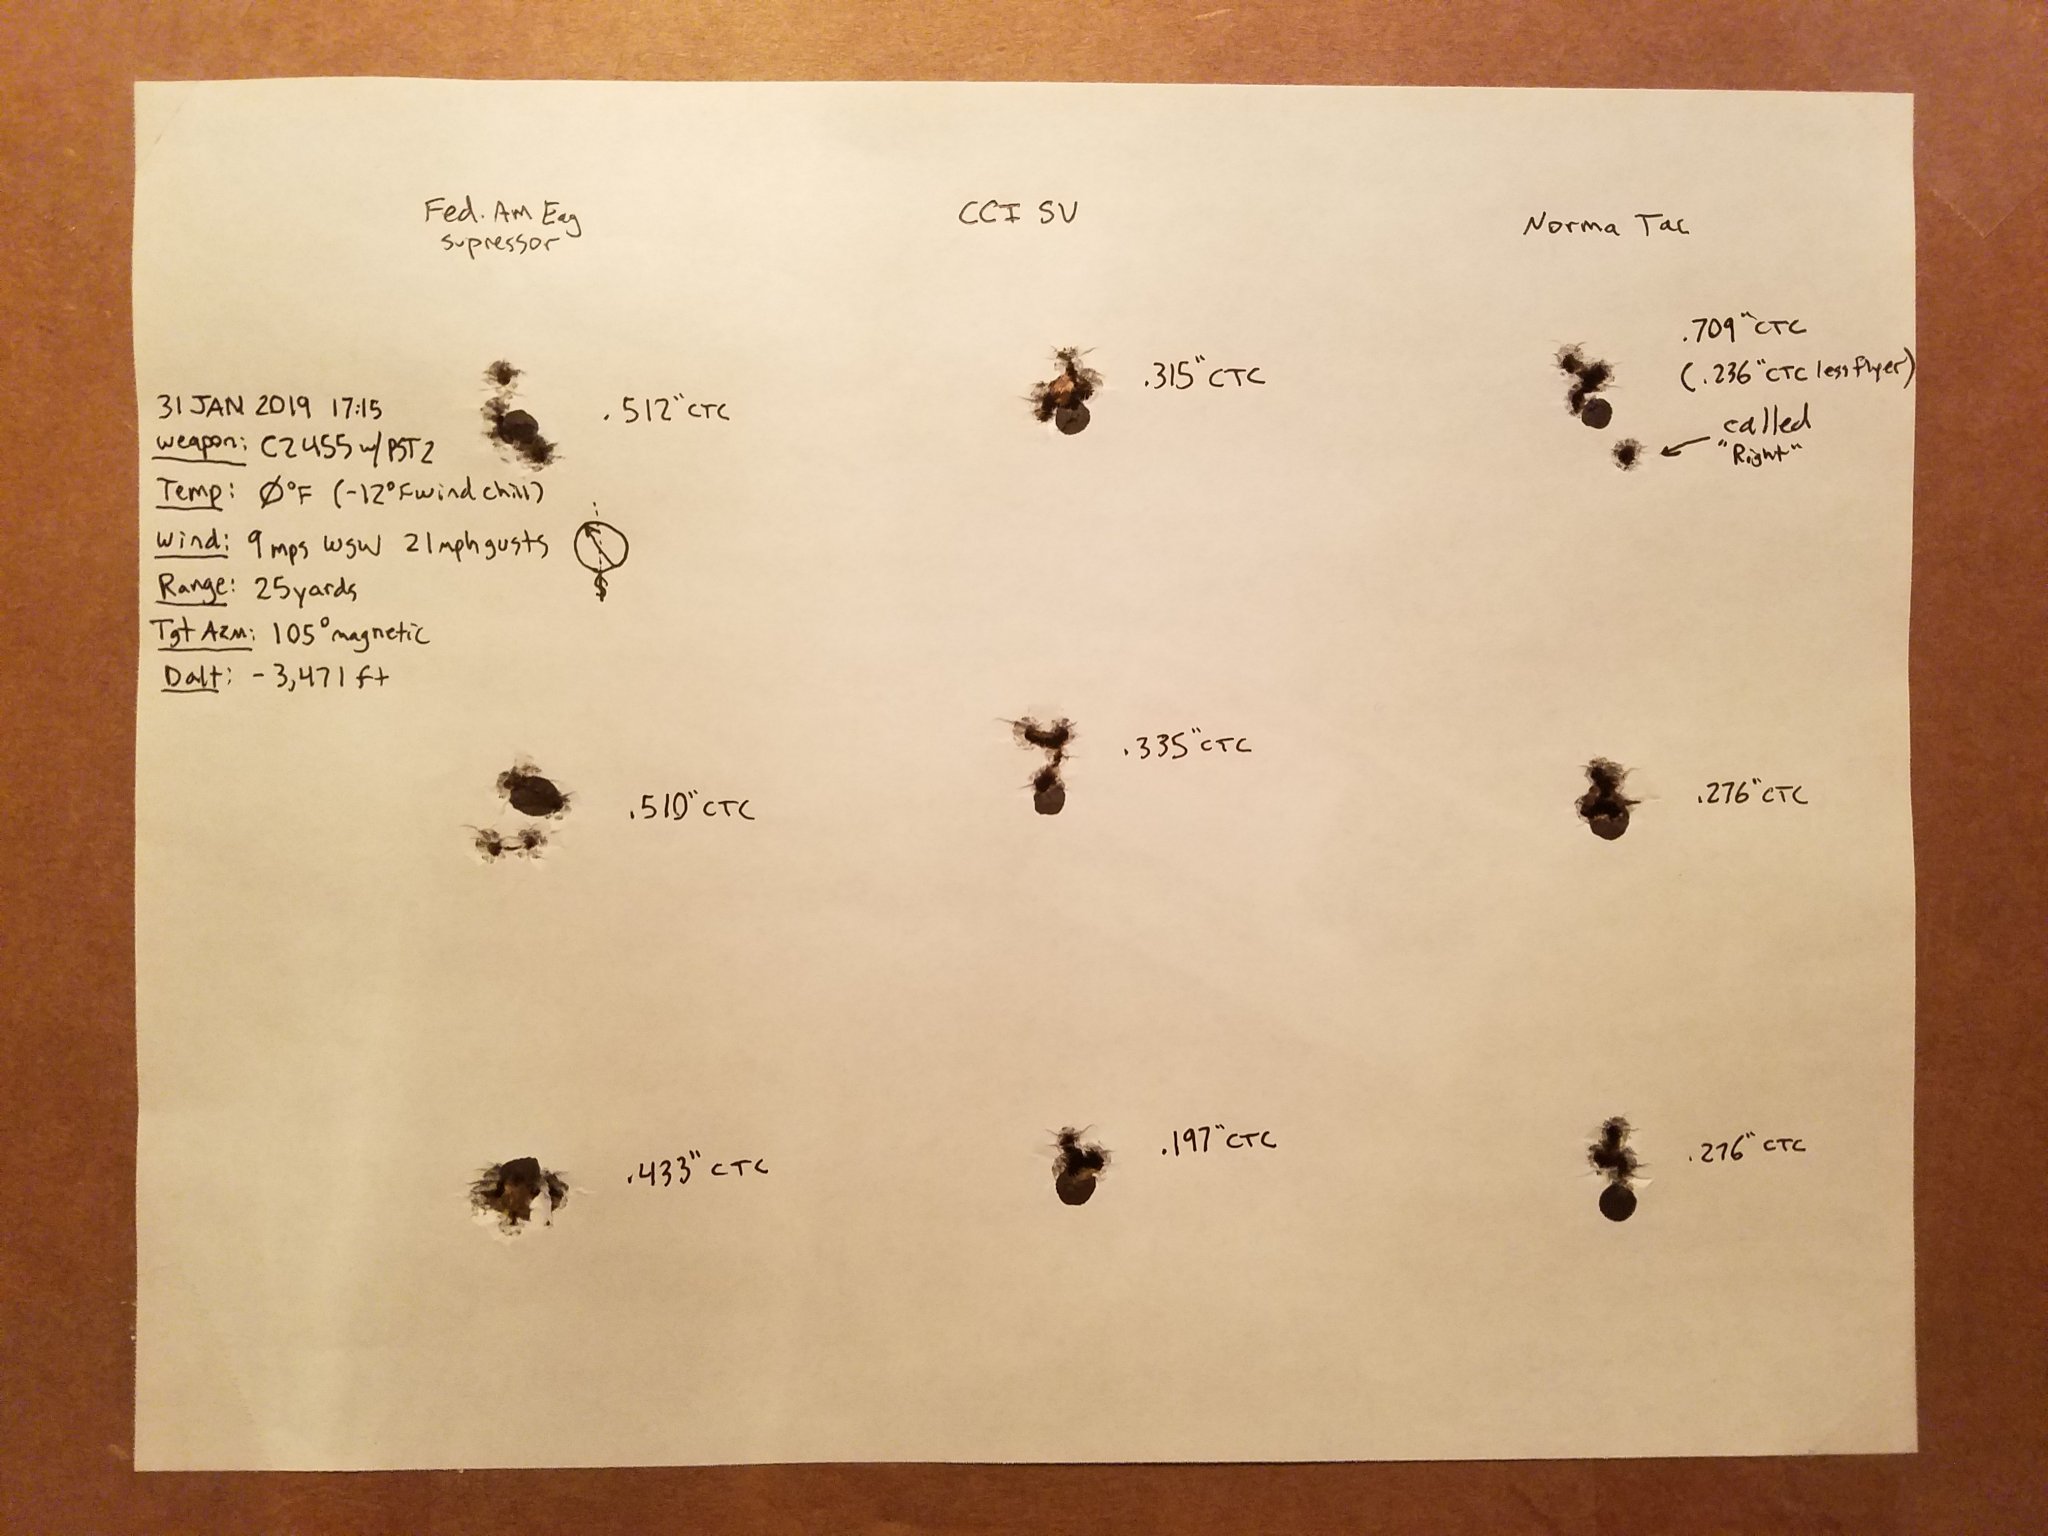 Fed. Am Eag
supressor
CCI SV
Norma Tac
.709" CTC
(.236" CTC less flyer)
called
"Right"
.512" CTC
.315" CTC
31 JAN 2019 17:15
weapon: CZ 455 w/ PST2
Temp: 0°F (-12°F wind chill)
Wind: 9 mps WSW 21 mph gusts
Range: 25 yards
Tgt Azm: 105° magnetic
Dalt: -3,471 ft
.510" CTC
.335" CTC
.276" CTC
.433" CTC
.197" CTC
.276" CTC